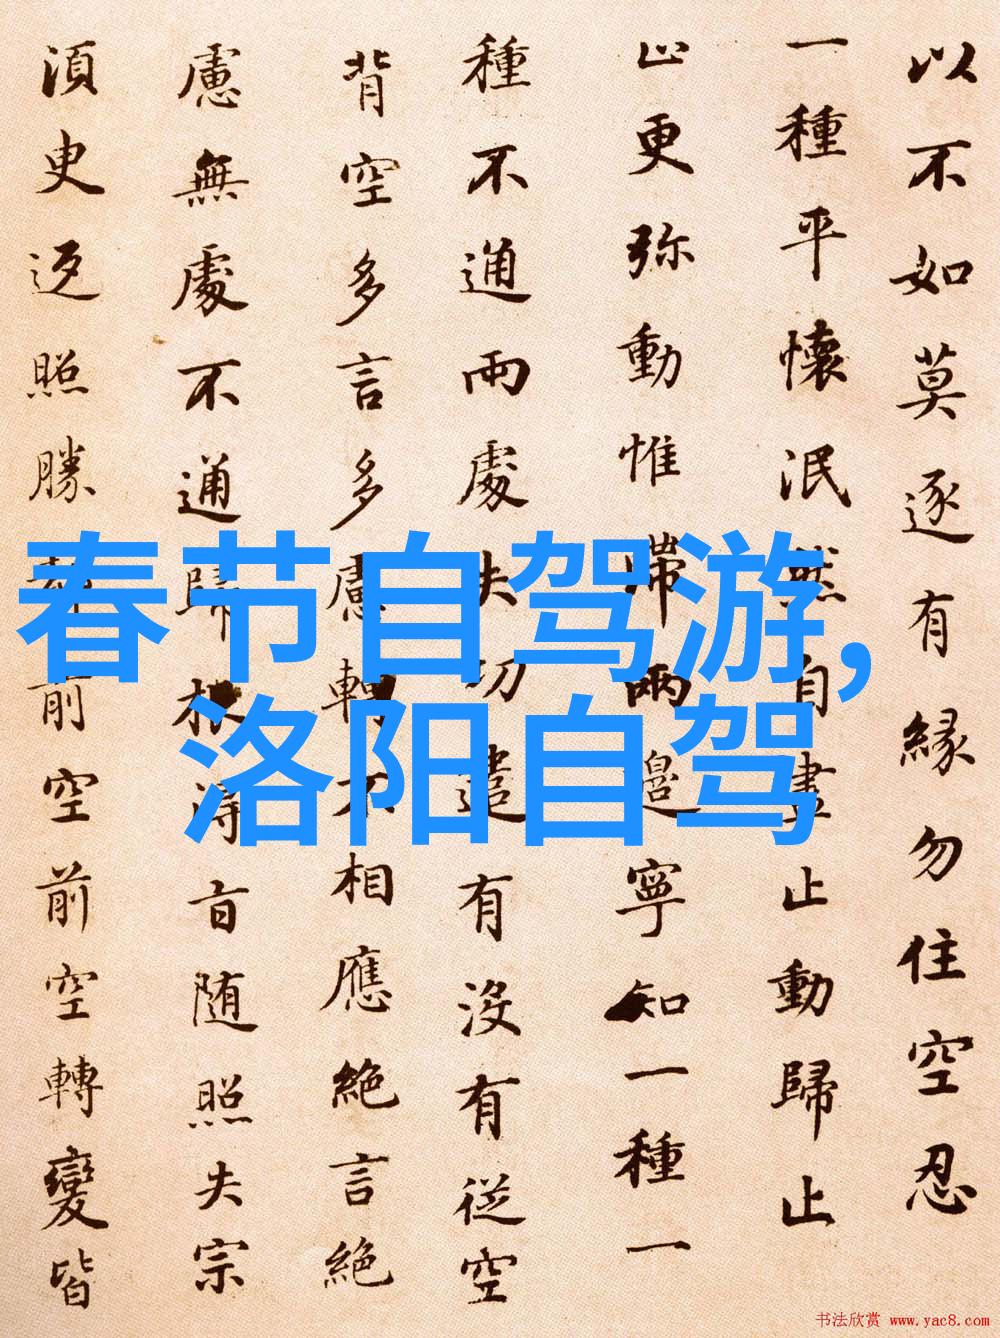 以不如莫逐有縁勿住空忍
一種平懷泯然自盡止動歸止
止更弥動惟滯兩邊寧知一種一
種不通兩處失功遣有没有従空
背空多言多慮轉不相應絶言絶
慮無處不通歸根得旨随照失宗
須臾返照勝却前空前空轉變皆
春节自驾游,
洛阳自驾
书法欣赏 www.yac8.com